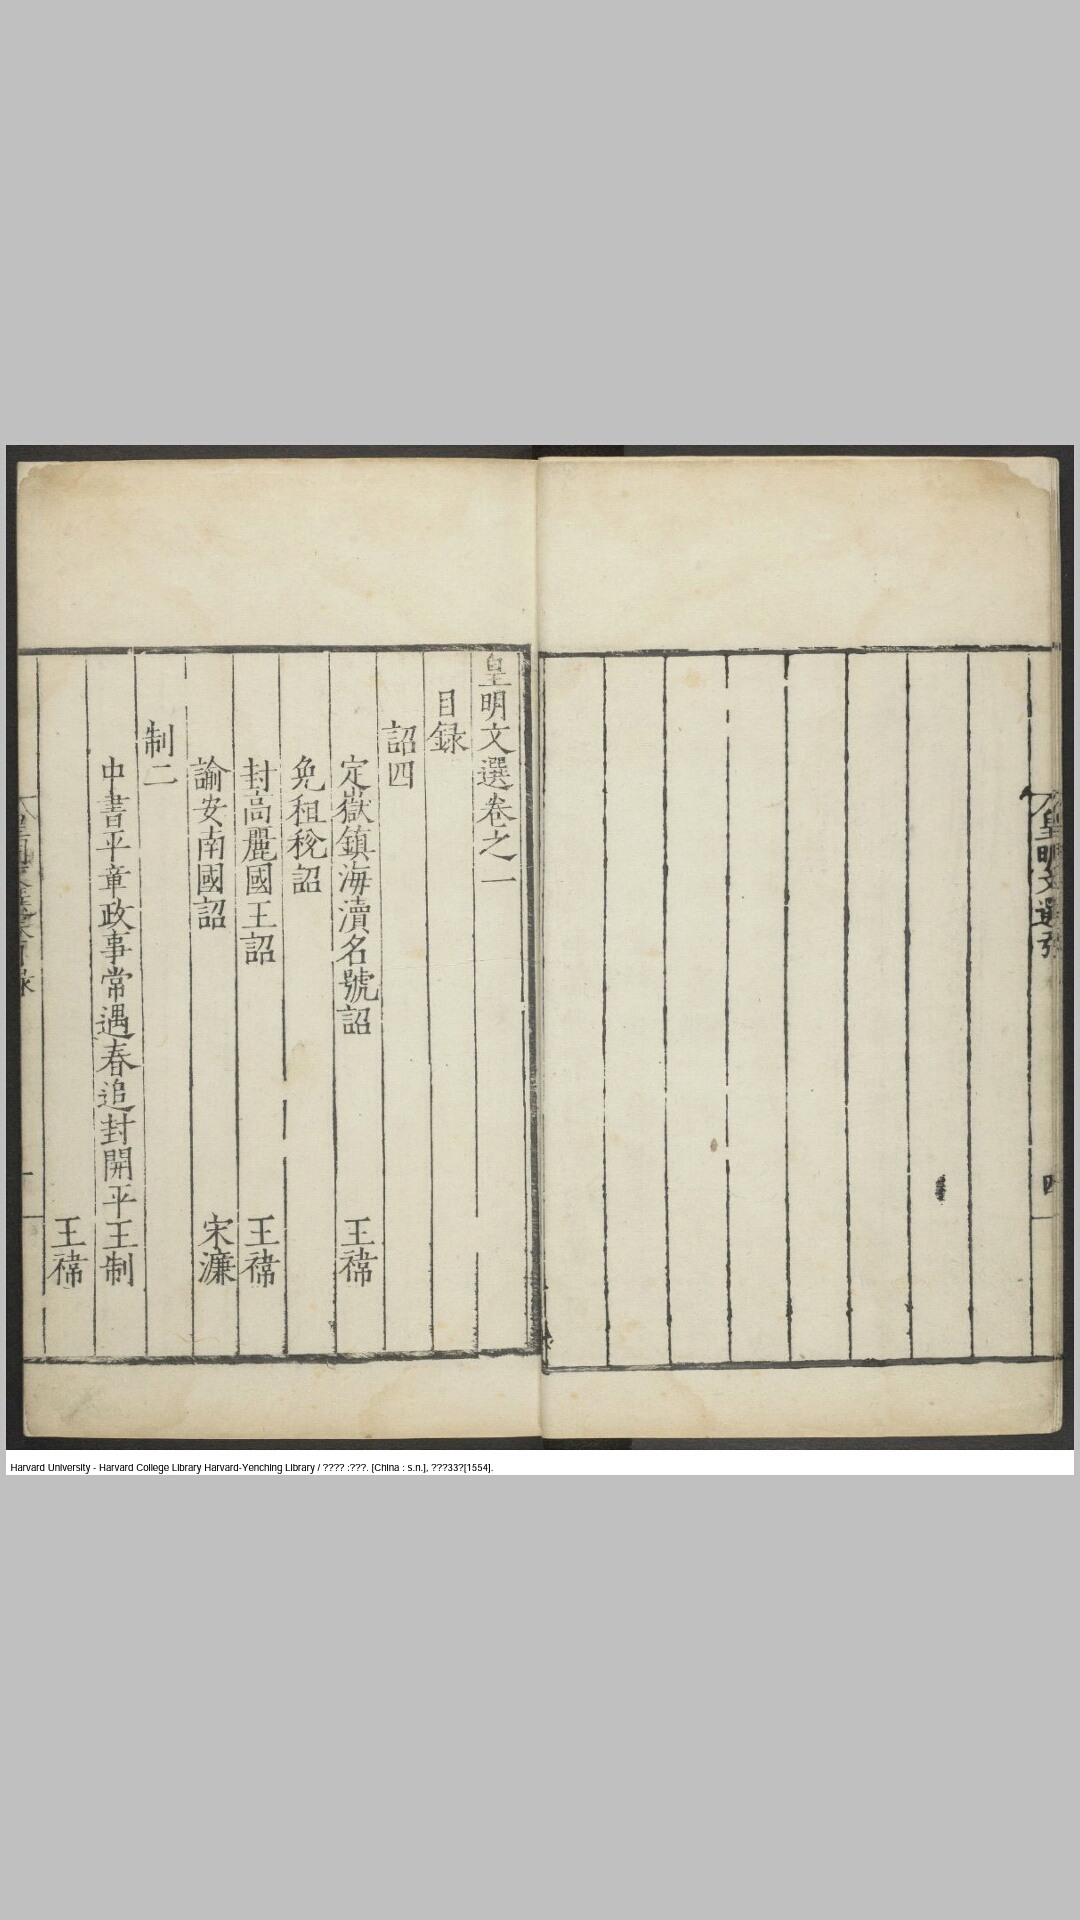 皇明文選卷之一
目錄
詔四
定嶽鎮海瀆名號詔 王禕
免租稅詔
封高麗國王詔 王禕
諭安南國詔 宋濂
制二
中書平章政事常遇春追封開平王制
王禕
皇明文選
四
Harvard University - Harvard College Library Harvard-Yenching Library / ???? :???. [China : s.n.], ???33?[1554].